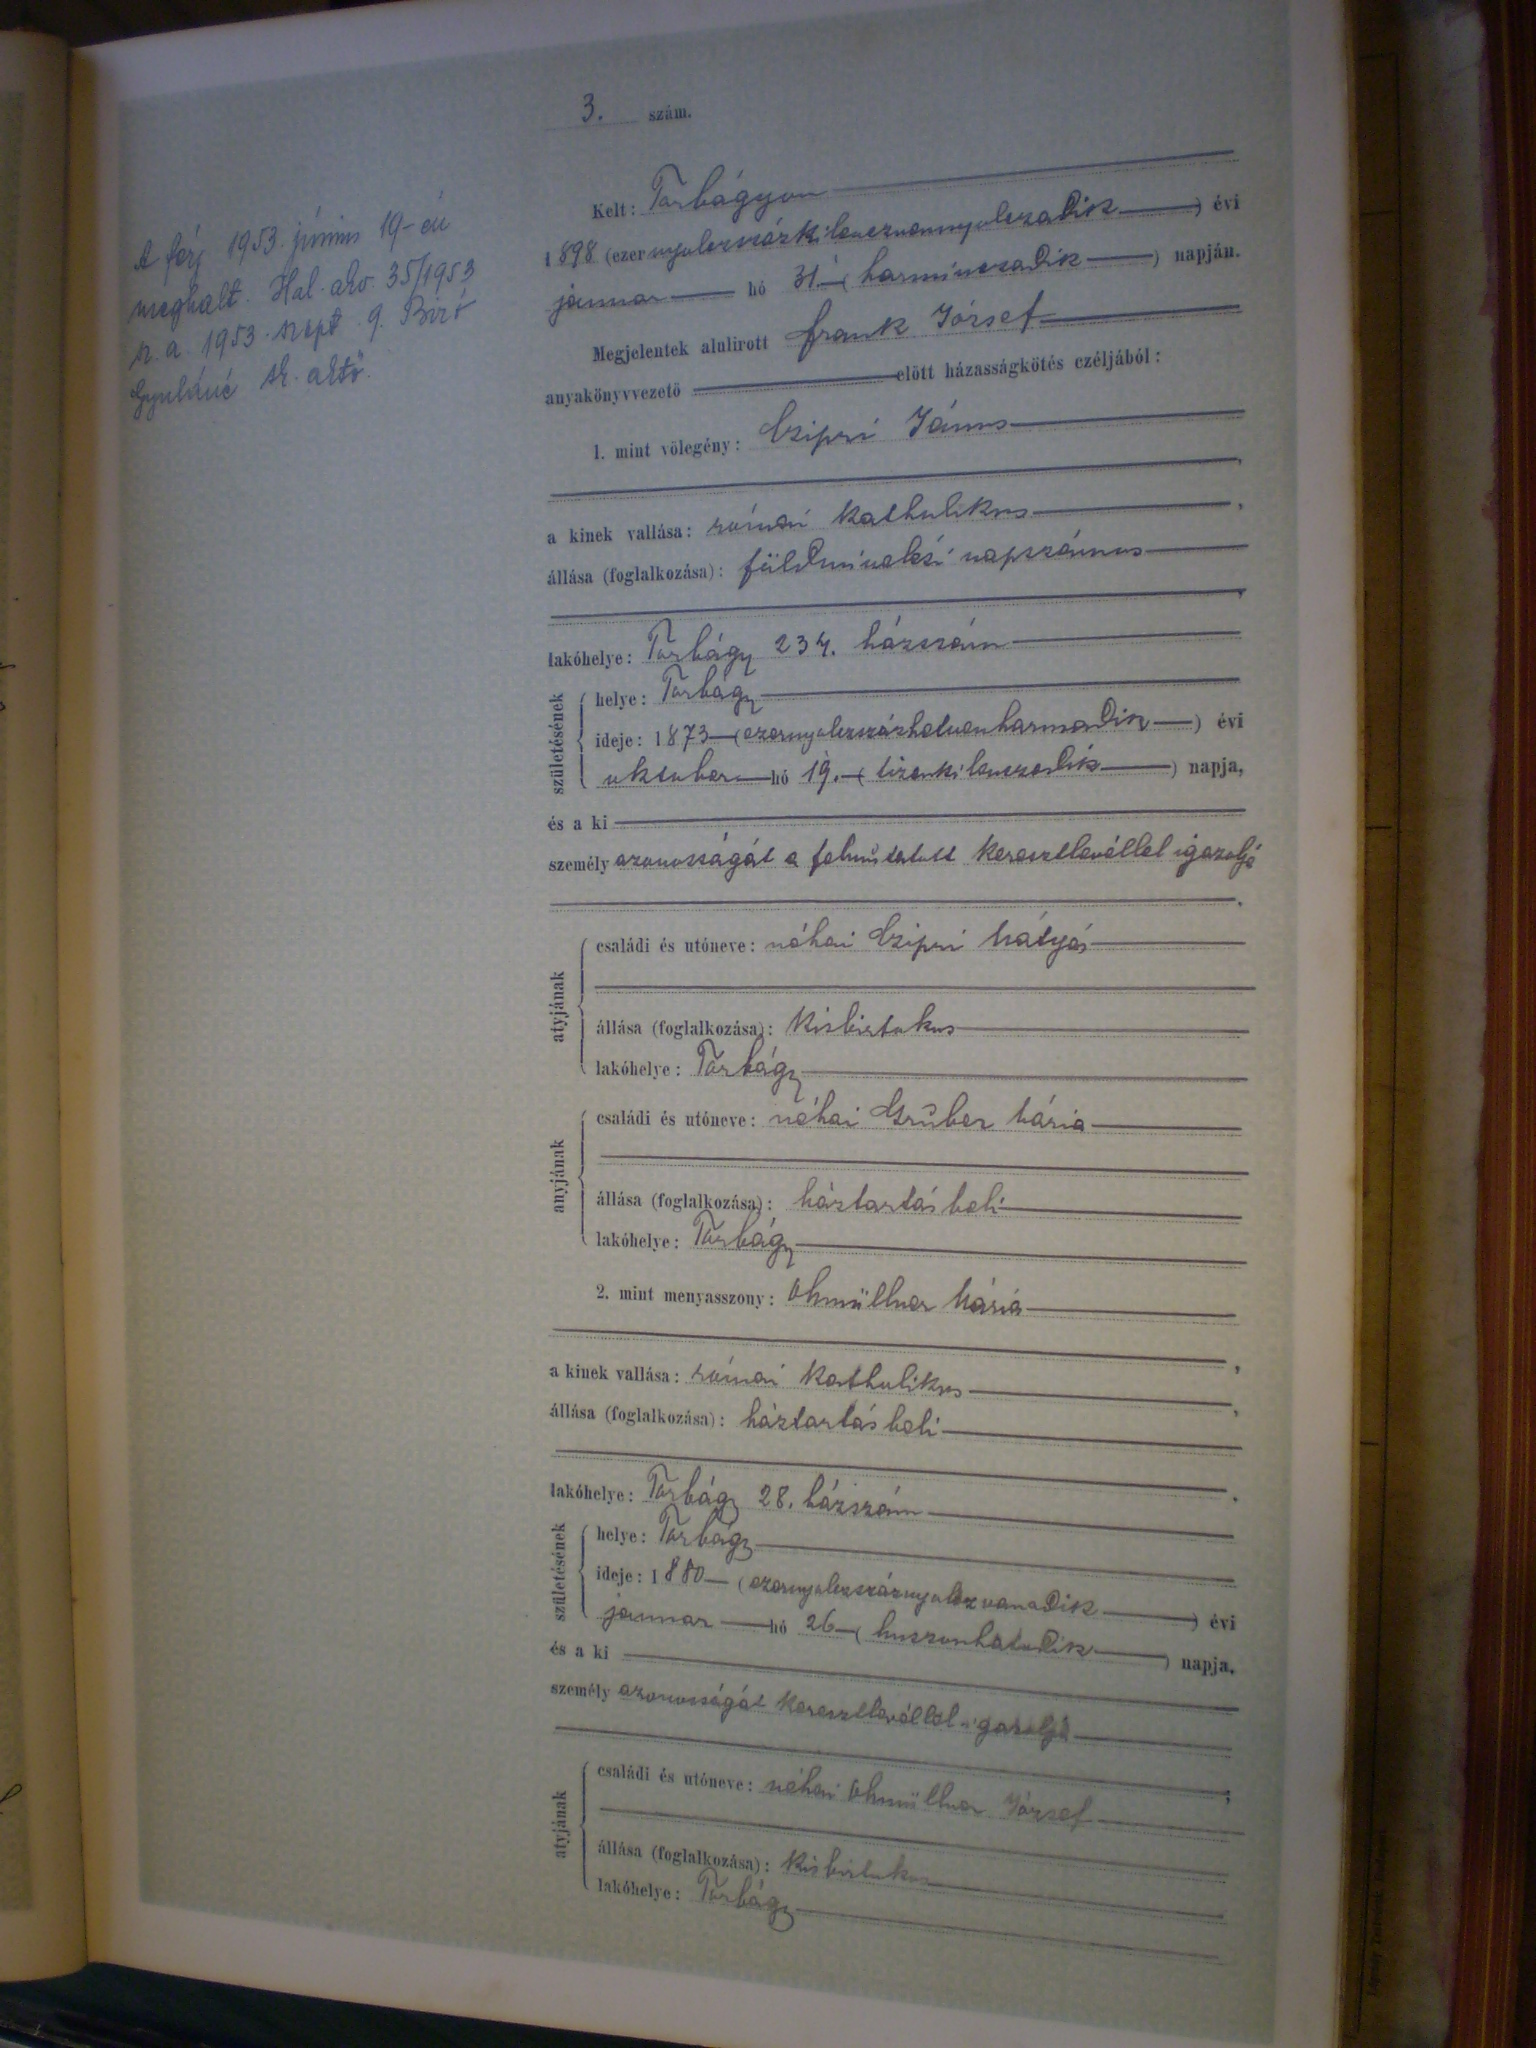 3. szám.
A férj 1953. június 19-én
meghalt. Hal. akv. 35/1953
sz. a. 1953. szept. 9. Biró
Gyuláné sk. aktő.
Kelt: Torbágyon
1898 (ezernyolczszázkilenczvennyolczadik) évi
januar hó 31. (harminczadik) napján.
Megjelentek alulirott Frank József
anyakönyvvezető előtt házasságkötés czéljából:
1. mint vőlegény: Czipri János
a kinek vallása: római katholikus,
állása (foglalkozása): földmivelési napszámos,
lakóhelye: Torbágy 234. házszám
születésének
helye: Torbágy
ideje: 1873 (ezernyolczszázhetvenharmadik) évi
oktober hó 19. (tizenkilenczedik) napja,
és a ki
személyazonosságát a felmutatott keresztlevéllel igazolja.
atyjának
családi és utóneve: néhai Czipri Mátyás
állása (foglalkozása): kisbirtokos
lakóhelye: Torbágy
anyjának
családi és utóneve: néhai Gruber Mária
állása (foglalkozása): háztartásbeli
lakóhelye: Torbágy
2. mint menyasszony: Ohmüllner Mária,
a kinek vallása: római katholikus,
állása (foglalkozása): háztartásbeli.
lakóhelye: Torbágy 28. házszám
születésének
helye: Torbágy
ideje: 1880 (ezernyolczszáznyolczvanadik) évi
januar hó 26 (huszonhatodik) napja,
és a ki
személy azonosságát keresztlevéllel igazolja;
atyjának
családi és utóneve: néhai Ohmüllner József
állása (foglalkozása): kisbirtokos
lakóhelye: Torbágy